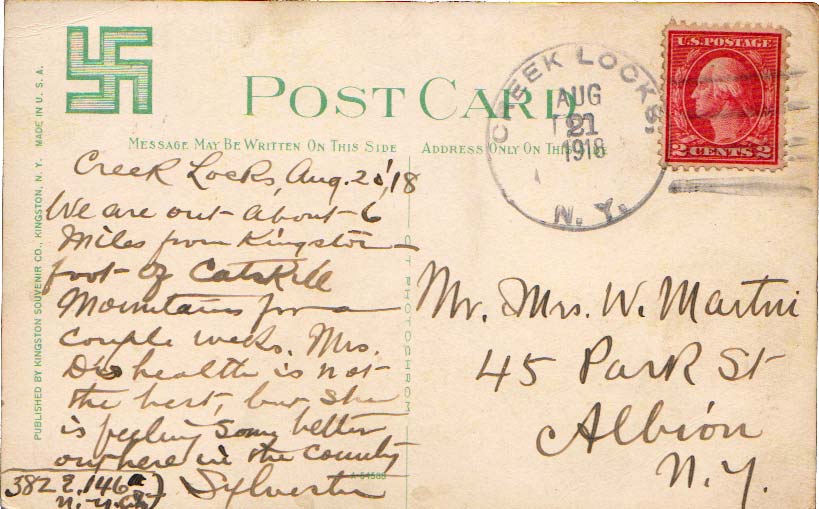 POST CARD
MESSAGE MAY BE WRITTEN ON THIS SIDE
ADDRESS ONLY ON THIS SIDE
CREEK LOCKS,
AUG
21
1918
N. Y.
U.S. POSTAGE
2 CENTS 2
PUBLISHED BY KINGSTON SOUVENIR CO., KINGSTON, N. Y. MADE IN U. S. A.
Creek Locks, Aug. 20,'18
We are out about 6
Miles from Kingston
foot of Catskill
Mountains for a
couple weeks. Mrs.
D's health is not
the best, but she
is feeling some better
out here in the county
Sylvester
382 E. 146
N.Y.
C T PHOTOCHROM
Mr. Mrs. W. Martin
45 Park St
Albion
N.Y.